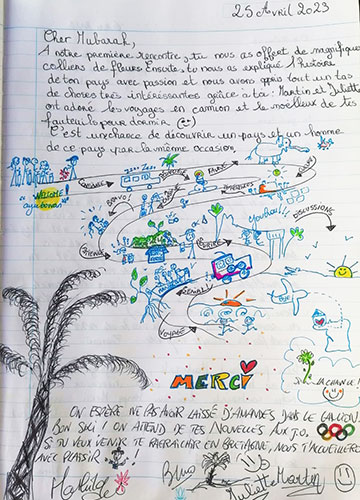 25 Avril 2023
Cher Mubarak,
A notre première rencontre, tu nous as offert de magnifiques
colliers de fleurs. Ensuite, tu nous as expliqué l'histoire
de ton pays avec passion et nous avons appris tout un tas
de choses très intéressantes grâce à toi. Martin et Juliette
ont adoré les voyages en camion et le moëlleux de tes
fauteuils pour dormir
C'est une chance de découvrir un pays et un homme
de ce pays par la même occasion.
WELCOME
ayubowan
BRAVO!
Youhou!
DISCUSSIONS
VOYAGE
LA CHANCE!
MERCI
ON ESPÈRE NE PAS AVOIR LAISSÉ D'AMANDES DANS LE CAMION.
BON SKI! ON ATTEND DE TES NOUVELLES AUX J.O.
SI TU VEUX VENIR TE RAFRAICHIR EN BRETAGNE, NOUS T'ACCUEILLERONS
AVEC PLAISIR!
Mathilde Bruno Juliette Martin